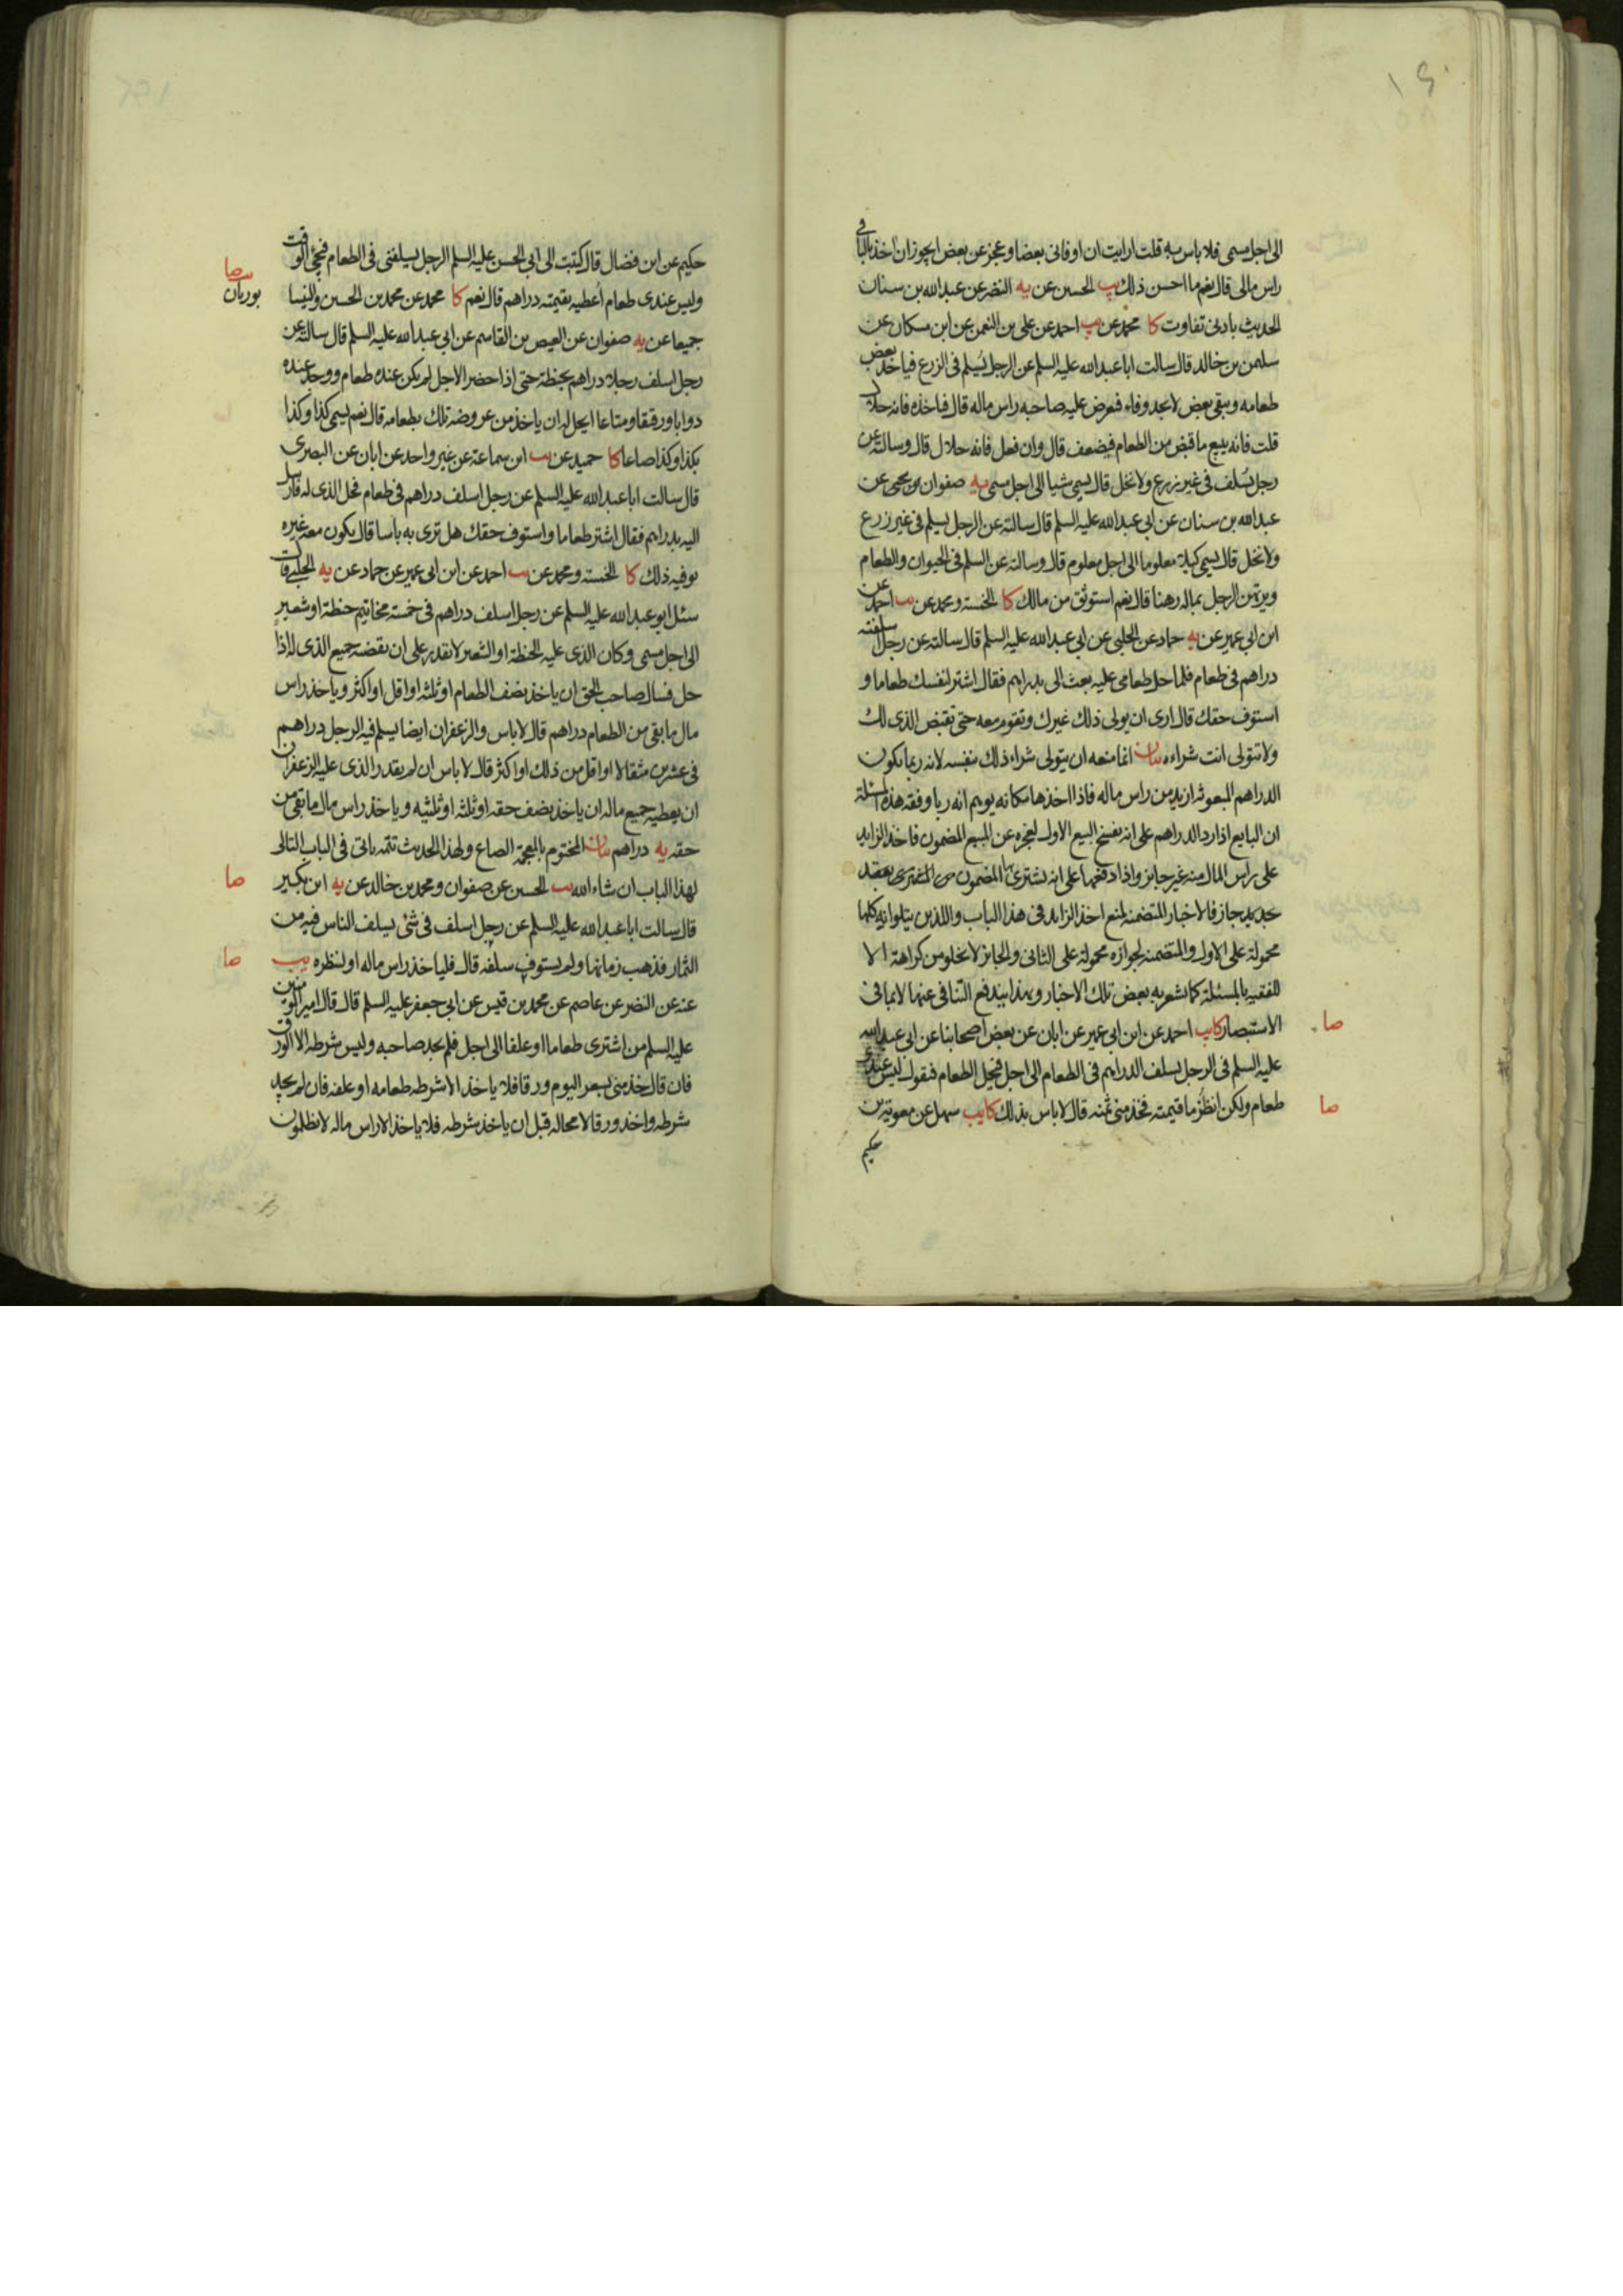 ١٩٠
الى اجل مسمى فلا باس به قلت ارايت ان اوفانى بعضا وعجز عن بعض ايجوز ان اخذ بالباقى
راس مالى قال نعم ما احسن ذلك يب الحسين عن يه النضر عن عبدالله بن سنان
الحديث بادنى تفاوت كا محمد عن يب احمد عن على بن النعمن عن ابن مسكان عن
سليمن بن خالد قال سالت ابا عبدالله عليه السلم عن الرجل يُسلم فى الزرع فياخذ بعض
طعامه ويبقى بعض لا يجد وفاء فيعرض عليه صاحبه راس ماله قال فياخذه فانه حلال
قلت فانه يبيع ما قبض من الطعام فيضعف قال وان فعل فانه حلال قال وسالته عن
رجل يُسلف فى غير زرع ولا نخل قال يسمى شيا الى اجل مسمى يه صفوان بن يحيى عن
عبدالله بن سنان عن ابى عبدالله عليه السلم قال سالته عن الرجل يسلم فى غير زرع
ولا نخل قال يسمى كيلا معلوما الى اجل معلوم قال وسالته عن السلم فى الحيوان والطعام
ويرتهن الرجل بماله رهنا قال نعم استوثق من مالك كا الخمسة ومحمد عن يب احمد عن
ابن ابى عمير عن يه حماد عن الحلبى عن ابى عبدالله عليه السلم قال سالته عن رجل اسلفته
دراهم فى طعام فلما حل طعامى عليه بعث الى بدراهم فقال اشتر لنفسك طعاما و
استوف حقك قال ارى ان يولى ذلك غيرك وتقوم معه حتى تقبض الذى لك
ولا تتولى انت شراءه بيان انما منعه ان يتولى شراء ذلك بنفسه لانه ربما يكون
الدراهم المبعوثه ازيد من راس ماله فاذا اخذها مكانه يوهم انه ربا وفقه هذه المسئلة
ان البايع اذا رد الدراهم على انه يفسخ البيع الاول لعجزه عن المبيع المضمون فاخذ الزايد
على راس المال منه غير جايز واذا دفعها على انه يشترى المضمون من المشترى بعقد
جديد جاز فالاخبار المتضمنه لمنع اخذ الزايد فى هذا الباب واللذين يتلوانه كلها
محمولة على الاول والمتضمنه لجوازه محمولة على الثانى والجايز لا تخلو من كراهة الا
للفقيه بالمسئلة كما يشعر به بعض تلك الاخبار وبهذا يندفع التنافى عنها لا بما فى
الاستبصار كا يب احمد عن ابن ابى عمير عن ابان عن بعض اصحابنا عن ابى عبدالله
صا
عليه السلم فى الرجل يسلف الدراهم فى الطعام الى اجل فيحل الطعام فيقول ليس عندى
طعام ولكن انظر ما قيمته فخذ منى ثمنه قال لا باس بذلك كا يب سهل عن معوية بن
صا
حكيم
حكيم عن ابن فضال قال كتبت الى ابى الحسن عليه السلم الرجل يسلفنى فى الطعام فيجئ الوقت
صا
وليس عندى طعام أعطيه بقيمته دراهم قال نعم كا محمد عن محمد بن الحسين والنيسا
بوريان
جميعا عن يه صفوان عن العيص بن القاسم عن ابى عبدالله عليه السلم قال سالته عن
رجل اسلف رجلا دراهم بحنطة حتى اذا حضر الاجل لم يكن عنده طعام ووجد عنده
دوابا ورقيقا ومتاعا ايحل له ان ياخذ من عروضه تلك بطعامه قال نعم يسمى كذا وكذا
بكذا وكذا صاعا كا حميد عن يب ابن سماعة عن غير واحد عن ابان عن البصرى
قال سالت ابا عبدالله عليه السلم عن رجل اسلف دراهم فى طعام فحل الذى له فارسل
اليه بدراهم فقال اشتر طعاما واستوف حقك هل ترى به باسا قال يكون معه غيره
يوفيه ذلك كا الخمسة ومحمد عن يب احمد عن ابن ابى عمير عن حماد عن يه الحلبى قال
سئل ابو عبدالله عليه السلم عن رجل اسلف دراهم فى خمسة مخاتيم حنطة او شعير
الى اجل مسمى وكان الذى عليه الحنطة او الشعير لا يقدر على ان يقضيه جميع الذى له اذا
حل فسال صاحب الحق ان ياخذ نصف الطعام او ثلثه او اقل او اكثر وياخذ راس
مال ما بقى من الطعام دراهم قال لا باس والزعفران ايضا يسلم فيه الرجل دراهم
فى عشرين مثقالا او اقل من ذلك او اكثر قال لا باس ان لم يقدر الذى عليه الزعفران
ان يعطيه جميع ماله ان ياخذ نصف حقه او ثلثه او ثلثيه وياخذ راس مال ما بقى من
حقه يه دراهم بيان المختوم بالمعجمة الصاع ولهذا الحديث تتمه ياتى فى الباب التالى
لهذا الباب ان شاء الله يب الحسين عن صفوان ومحمد بن خالد عن يه ابن بكير
صا
قال سالت ابا عبدالله عليه السلم عن رجل اسلف فى شئ يسلف الناس فيه من
الثمار فذهب زمانها ولم يستوف سلفه قال فلياخذ راس ماله او لينظره يب
صا
عنه عن النضر عن عاصم عن محمد بن قيس عن ابى جعفر عليه السلم قال قال امير المومنين
عليه السلم من اشترى طعاما او علفا الى اجل فلم يجد صاحبه وليس شرطه الا الورق
فان قال خذ منى بسعر اليوم ورقا فلا ياخذ الا شرطه طعامه او علفه فان لم يجد
شرطه واخذ ورقا لا محاله قبل ان ياخذ شرطه فلا ياخذ الا راس ماله لا تظلمون